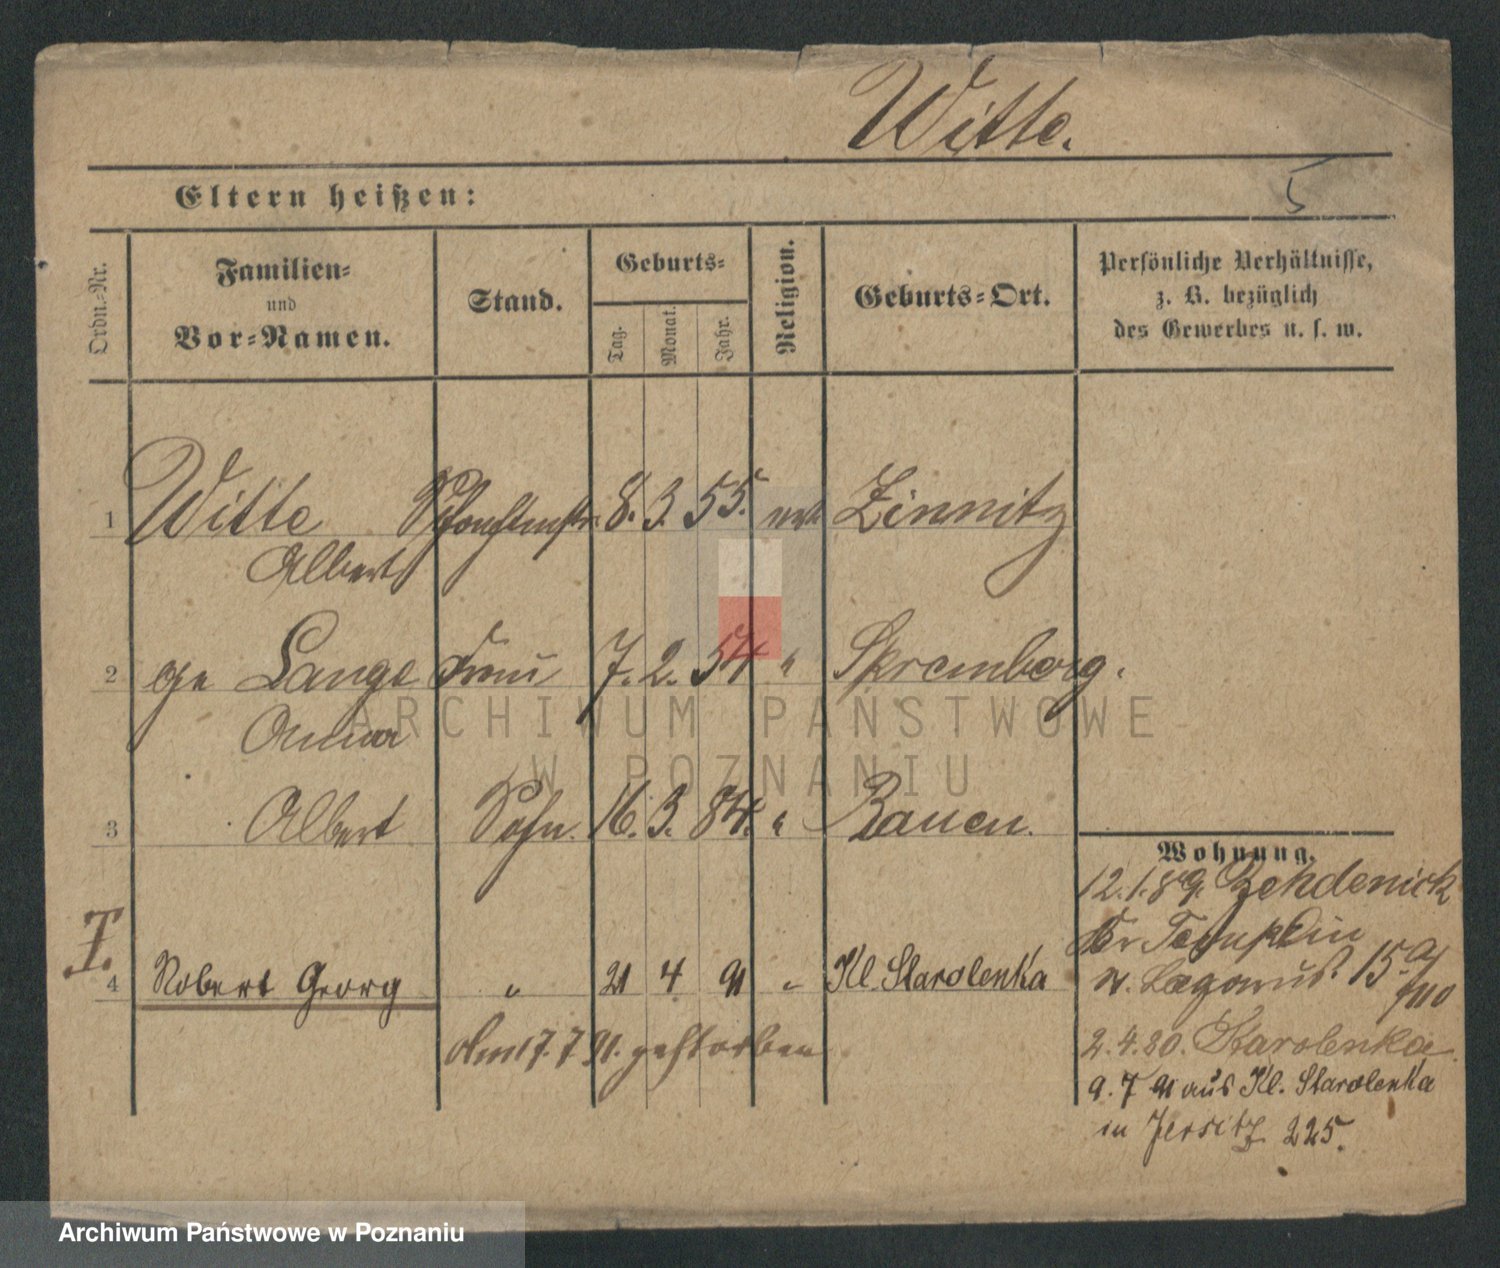 Witte.
Eltern heißen:
5
Ordn.-Nr.
Familien-
und
Vor-Namen.
Stand.
Geburts-
Tag.
Monat.
Jahr.
Religion.
Geburts-Ort.
Persönliche Verhältnisse,
z. B. bezüglich
des Gewerbes u. s. w.
1 Witte 8. 3. 55. Zinnitz
Albert
2 ge Lange Frau 7. 2. 54 " Spremberg.
Anna
ARCHIWUM PAŃSTWOWE
W POZNANIU
3 Albert Sohn. 16. 3. 84. " Rauen.
Wohnung.
12.1.89. Zehdenick
Kr Templin
T.
4 Robert Georg " 21 4 91 " Kl. Starolenka
Am 17. 7 91. gestorben
2.4.80. Starolenka.
9. 7 91 aus Kl. Starolenka
in Jersitz 225.
Archiwum Państwowe w Poznaniu